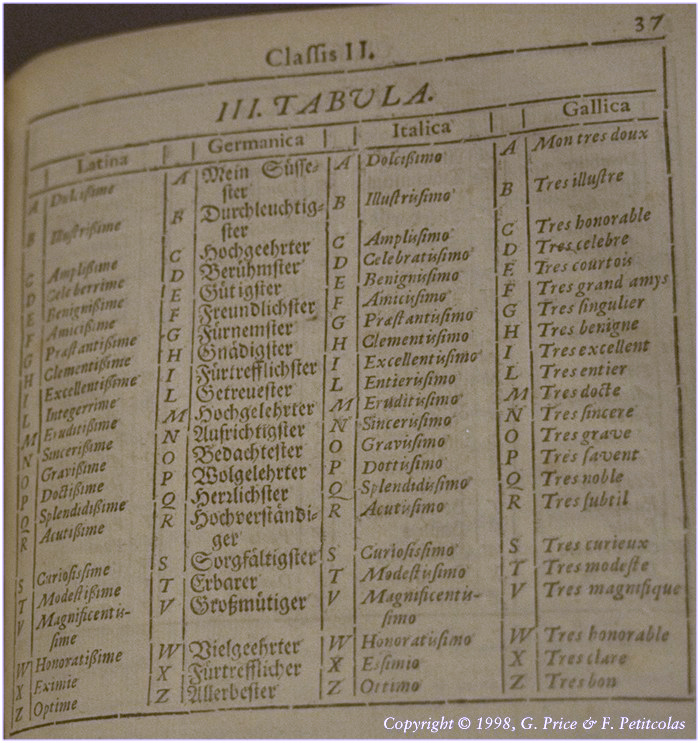 37
Claſſis II.
III. TABULA.
Latina | Germanica | Italica | Gallica
A Dulciſſime A Mein Süſſe- A Dolciſſimo A Mon tres doux
ſter
B Illuſtriſſime B Durchleuchtig- B Illuſtriſſimo B Tres illuſtre
ſter
C Ampliſſime C Hochgeehrter C Ampliſſimo C Tres honorable
D Celeberrime D Berühmſter D Celebratiſſimo D Tres celebre
E Benigniſſime E Gütigſter E Benigniſſimo E Tres courtois
F Amiciſſime F Freundlichſter F Amiciſſimo F Tres grand amys
G Præſtantiſſime G Fürnemſter G Præſtantiſſimo G Tres ſingulier
H Clementiſſime H Gnädigſter H Clementiſſimo H Tres benigne
I Excellentiſſime I Fürtrefflichſter I Excellentiſſimo I Tres excellent
L Integerrime L Getreueſter L Entieriſſimo L Tres entier
M Eruditiſſime M Hochgelehrter M Eruditiſſimo M Tres docte
N Sinceriſſime N Aufrichtigſter N Sinceriſſimo N Tres ſincere
O Graviſſime O Bedachteſter O Graviſſimo O Tres grave
P Doctiſſime P Wolgelehrter P Dottiſſimo P Tres ſavent
Q Splendidiſſime Q Hertzlichſter Q Splendidiſſimo Q Tres noble
R Acutiſſime R Hochverſtändi- R Acutiſſimo R Tres ſubtil
ger
S Curioſiſſime S Sorgfältigſter S Curioſiſſimo S Tres curieux
T Modeſtiſſime T Erbarer T Modeſtiſſimo T Tres modeſte
V Magnificentiſ- V Großmütiger V Magnificentiſ- V Tres magnifique
ſime ſimo
W Honoratiſſime W Vielgeehrter W Honoratiſſimo W Tres honorable
X Eximie X Fürtrefflicher X Eſſimio X Tres clare
Z Optime Z Allerbeſter Z Ottimo Z Tres bon
Copyright © 1998, G. Price & F. Petitcolas